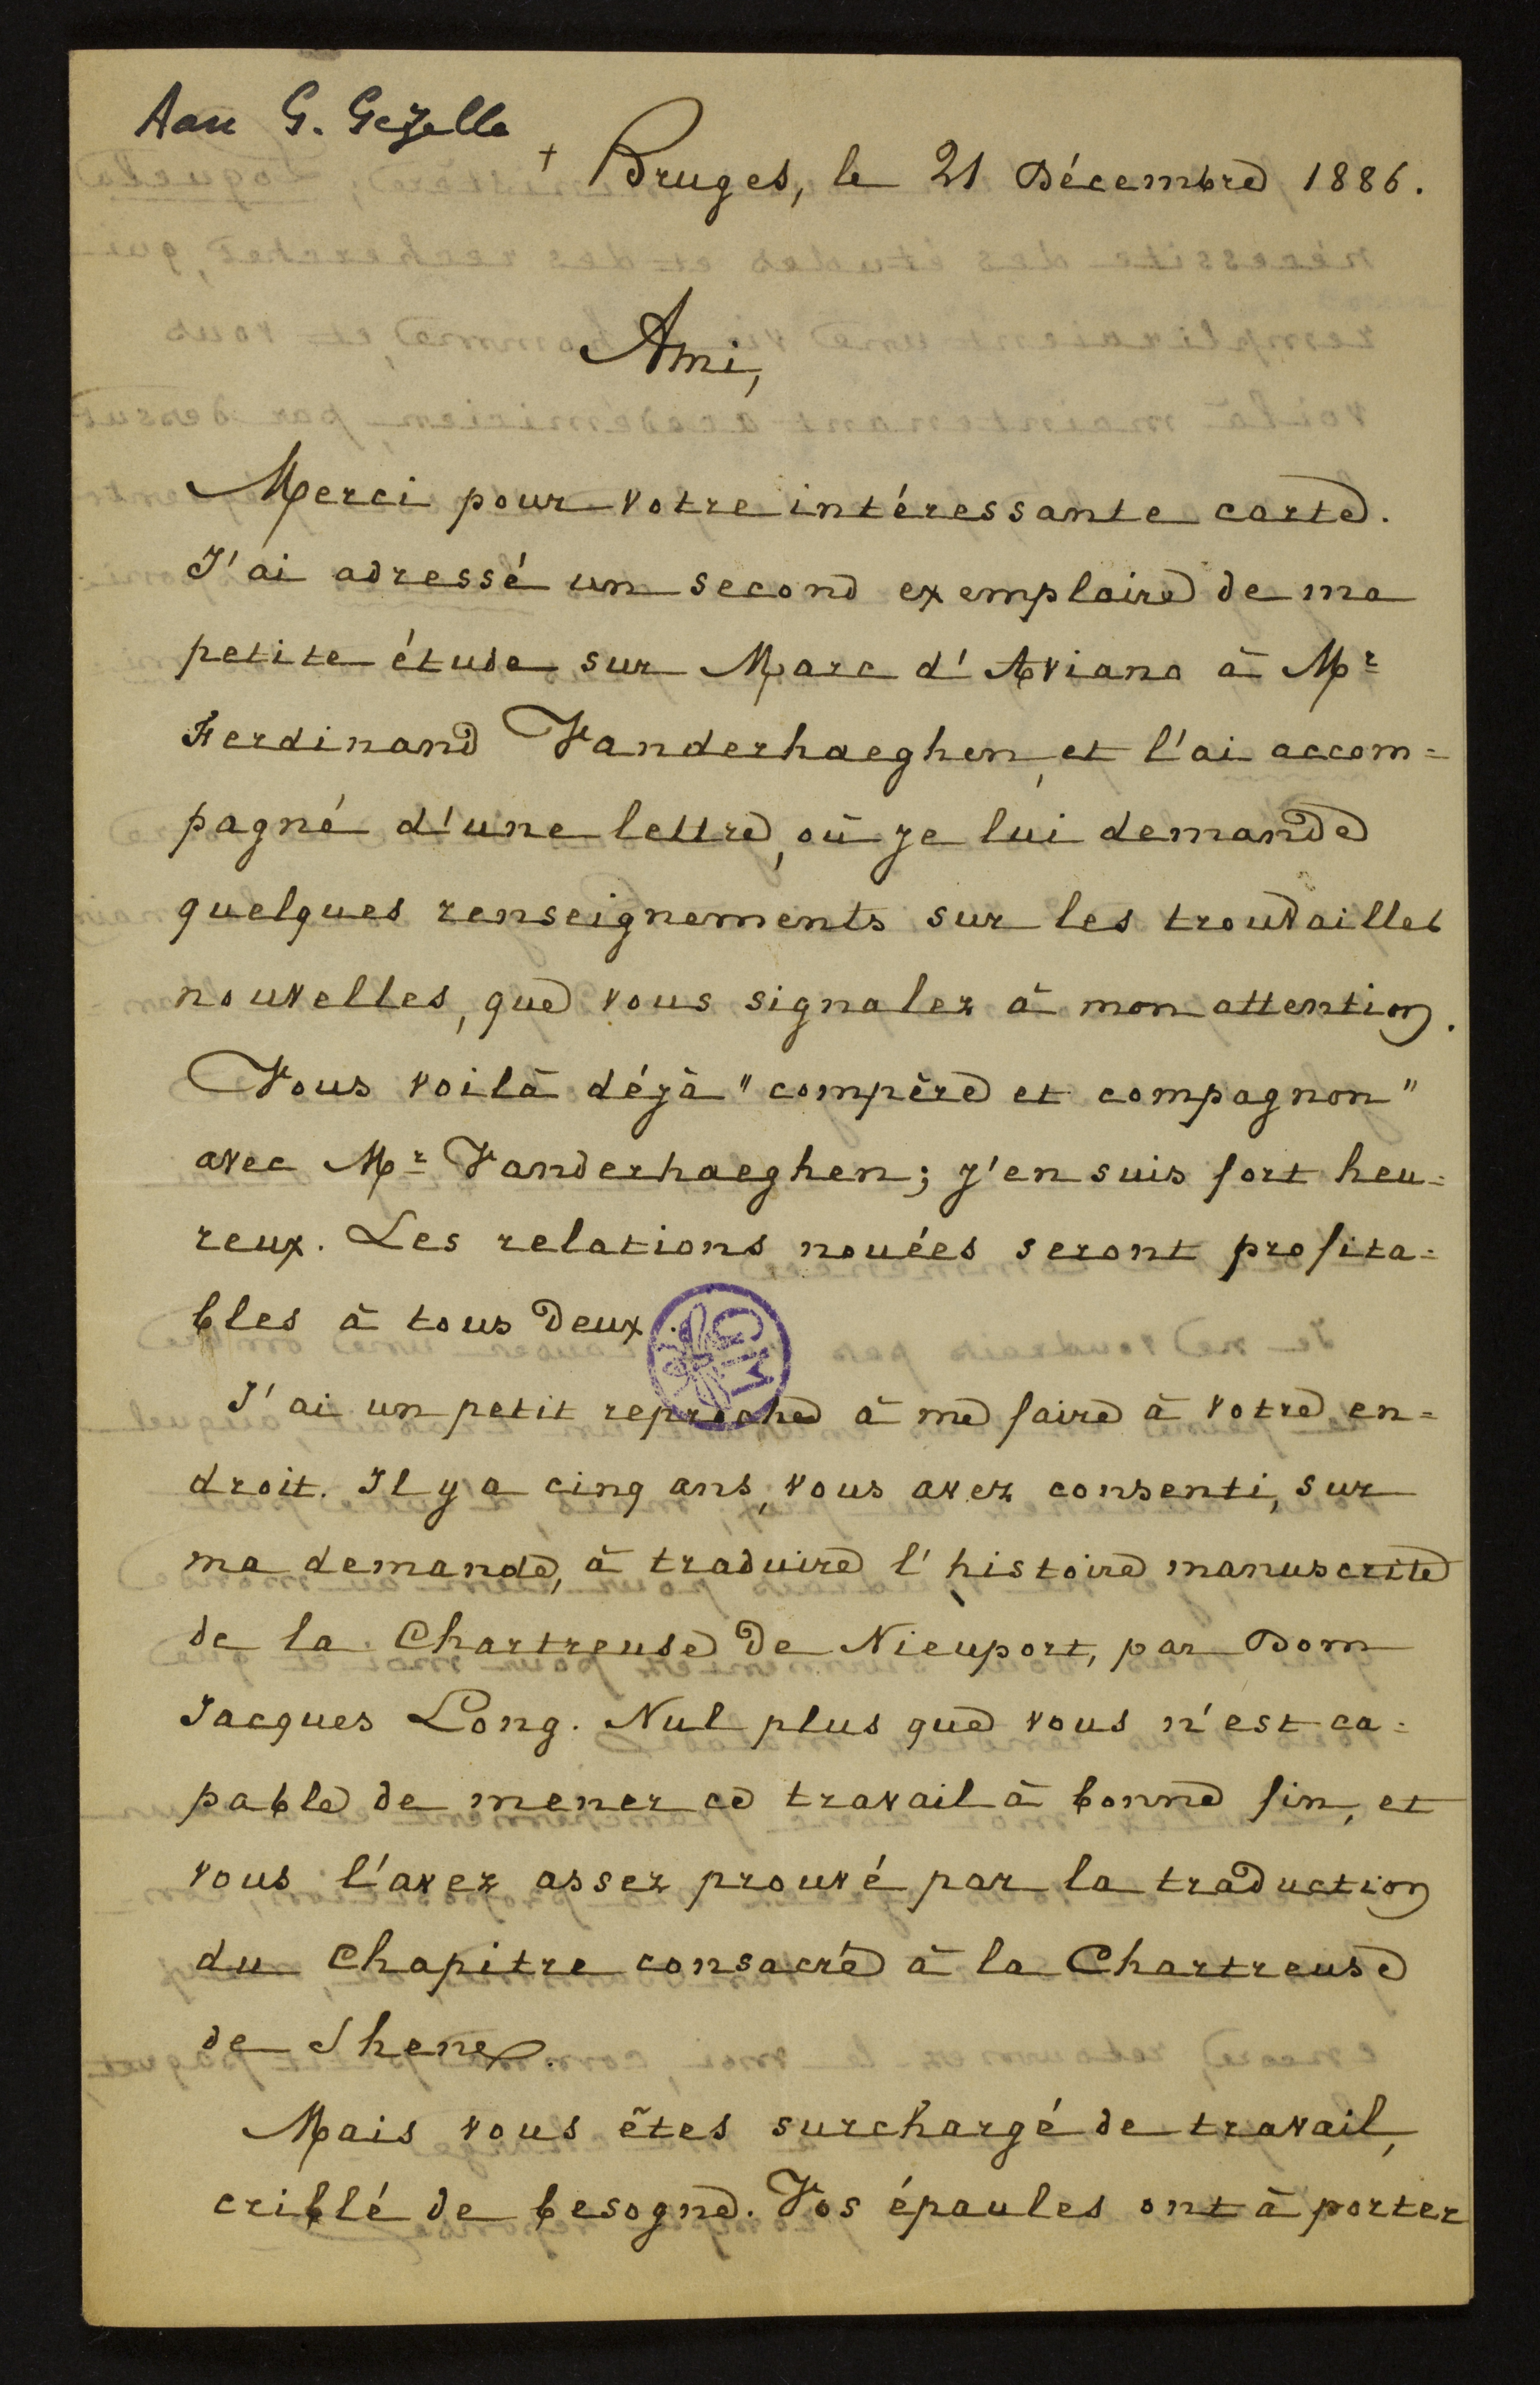 Aan G. Gezelle
+ Bruges, le 21 Décembre 1886.
Ami,
Merci pour votre intéressante carte.
J'ai adressé un second exemplaire de ma
petite étude sur Marc d'Aviano à Mr
Ferdinand Vanderhaeghen, et l'ai accom=
pagné d'une lettre, où je lui demande
quelques renseignements sur les trouvailles
nouvelles, que vous signalez à mon attention.
Vous voilà déjà "compère et compagnon"
avec Mr Vanderhaeghen; j'en suis fort heu=
reux. Les relations nouées seront profita=
bles à tous deux.
J'ai un petit reproche à me faire à votre en=
droit. Il y a cinq ans, vous avez consenti, sur
ma demande, à traduire l'histoire manuscrite
de la Chartreuse de Nieuport, par Dom
Jacques Long. Nul plus que vous n'est ca=
pable de mener ce travail à bonne fin, et
vous l'avez assez prouvé par la traduction
du Chapitre consacré à la Chartreuse
de Shene.
Mais vous êtes surchargé de travail,
criblé de besogne. Vos épaules ont à porter